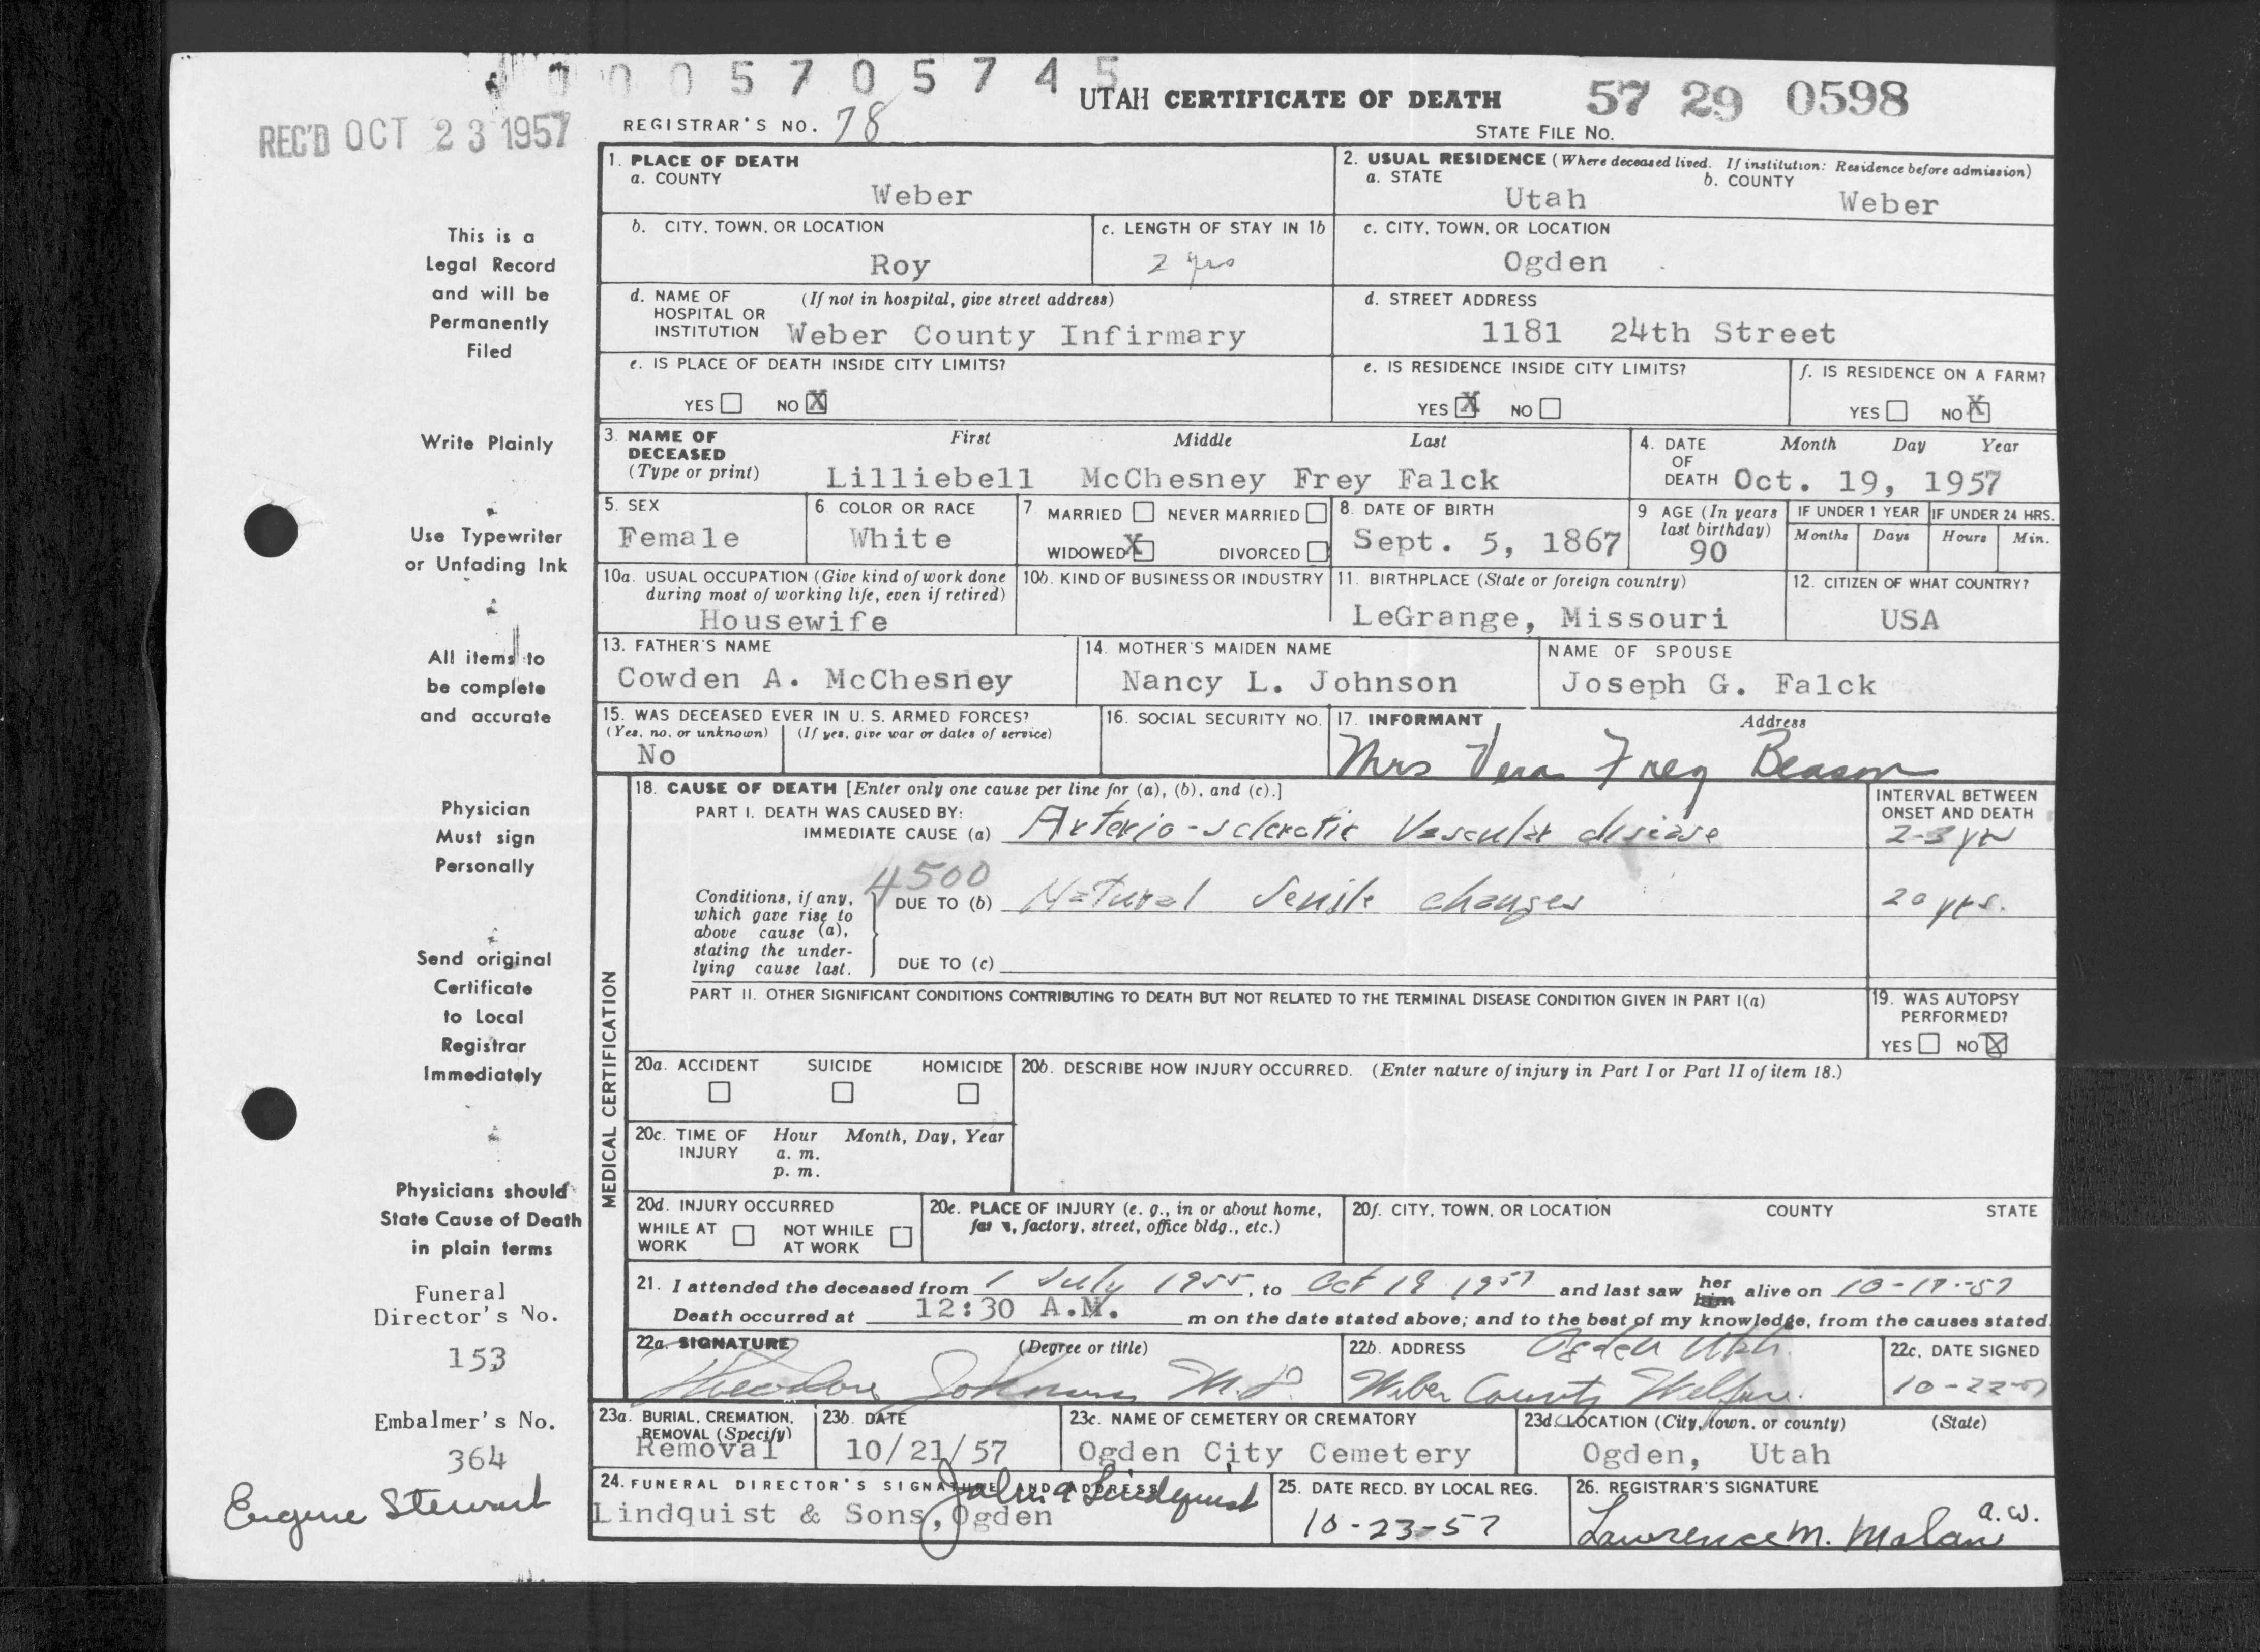 0 0 0 5 7 0 5 7 4 5
UTAH CERTIFICATE OF DEATH
57 29 0598
REC'D OCT 23 1957
REGISTRAR'S NO. 78
STATE FILE NO.
1. PLACE OF DEATH
a. COUNTY
Weber
2. USUAL RESIDENCE (Where deceased lived. If institution: Residence before admission)
a. STATE
Utah
b. COUNTY
Weber
b. CITY, TOWN, OR LOCATION
Roy
c. LENGTH OF STAY IN 1b
2 yrs
c. CITY, TOWN, OR LOCATION
Ogden
d. NAME OF HOSPITAL OR INSTITUTION
(If not in hospital, give street address)
Weber County Infirmary
d. STREET ADDRESS
1181 24th Street
e. IS PLACE OF DEATH INSIDE CITY LIMITS?
YES NO X
e. IS RESIDENCE INSIDE CITY LIMITS?
YES X NO
f. IS RESIDENCE ON A FARM?
YES NO X
3. NAME OF DECEASED
(Type or print)
First Middle Last
Lilliebell McChesney Frey Falck
4. DATE OF DEATH
Month Day Year
Oct. 19, 1957
5. SEX
Female
6. COLOR OR RACE
White
7. MARRIED NEVER MARRIED
WIDOWED X DIVORCED
8. DATE OF BIRTH
Sept. 5, 1867
9 AGE (In years last birthday)
90
IF UNDER 1 YEAR
Months Days
IF UNDER 24 HRS.
Hours Min.
10a. USUAL OCCUPATION (Give kind of work done during most of working life, even if retired)
Housewife
10b. KIND OF BUSINESS OR INDUSTRY
11. BIRTHPLACE (State or foreign country)
LeGrange, Missouri
12. CITIZEN OF WHAT COUNTRY?
USA
13. FATHER'S NAME
Cowden A. McChesney
14. MOTHER'S MAIDEN NAME
Nancy L. Johnson
NAME OF SPOUSE
Joseph G. Falck
15. WAS DECEASED EVER IN U. S. ARMED FORCES?
(Yes, no, or unknown) (If yes, give war or dates of service)
No
16. SOCIAL SECURITY NO.
17. INFORMANT Address
Mrs Vera Frey Beason
18. CAUSE OF DEATH [Enter only one cause per line for (a), (b), and (c).]
PART I. DEATH WAS CAUSED BY:
IMMEDIATE CAUSE (a) Arterio-sclerotic Vascular disease
INTERVAL BETWEEN ONSET AND DEATH
2-3 yrs
4500
Conditions, if any, which gave rise to above cause (a), stating the underlying cause last.
DUE TO (b) Natural Senile changes
20 yrs.
DUE TO (c)
PART II. OTHER SIGNIFICANT CONDITIONS CONTRIBUTING TO DEATH BUT NOT RELATED TO THE TERMINAL DISEASE CONDITION GIVEN IN PART I(a)
19. WAS AUTOPSY PERFORMED?
YES NO X
MEDICAL CERTIFICATION
20a. ACCIDENT SUICIDE HOMICIDE
20b. DESCRIBE HOW INJURY OCCURRED. (Enter nature of injury in Part I or Part II of item 18.)
20c. TIME OF INJURY
Hour Month, Day, Year
a. m.
p. m.
20d. INJURY OCCURRED
WHILE AT WORK NOT WHILE AT WORK
20e. PLACE OF INJURY (e. g., in or about home, farm, factory, street, office bldg., etc.)
20f. CITY, TOWN, OR LOCATION COUNTY STATE
21. I attended the deceased from 1 July 1955, to Oct 19 1957 and last saw her him alive on 10-17-57
Death occurred at 12:30 A.M. m on the date stated above; and to the best of my knowledge, from the causes stated.
22a. SIGNATURE (Degree or title)
Theodore Johnson M.D.
22b. ADDRESS
Ogden Utah.
Weber County Welfare.
22c. DATE SIGNED
10-22-57
23a. BURIAL, CREMATION, REMOVAL (Specify)
Removal
23b. DATE
10/21/57
23c. NAME OF CEMETERY OR CREMATORY
Ogden City Cemetery
23d. LOCATION (City, town, or county) (State)
Ogden, Utah
24. FUNERAL DIRECTOR'S SIGNATURE AND ADDRESS
John A Lindquist
Lindquist & Sons, Ogden
25. DATE RECD. BY LOCAL REG.
10-23-57
26. REGISTRAR'S SIGNATURE
Lawrence M. Malan a.w.
This is a
Legal Record
and will be
Permanently
Filed
Write Plainly
Use Typewriter
or Unfading Ink
All items to
be complete
and accurate
Physician
Must sign
Personally
Send original
Certificate
to Local
Registrar
Immediately
Physicians should
State Cause of Death
in plain terms
Funeral
Director's No.
153
Embalmer's No.
364
Eugene Stewart